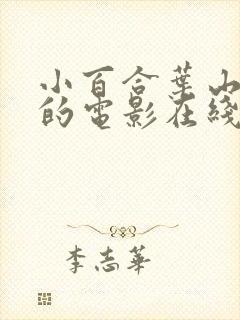 小百合葉山
的電影在綫
李志華